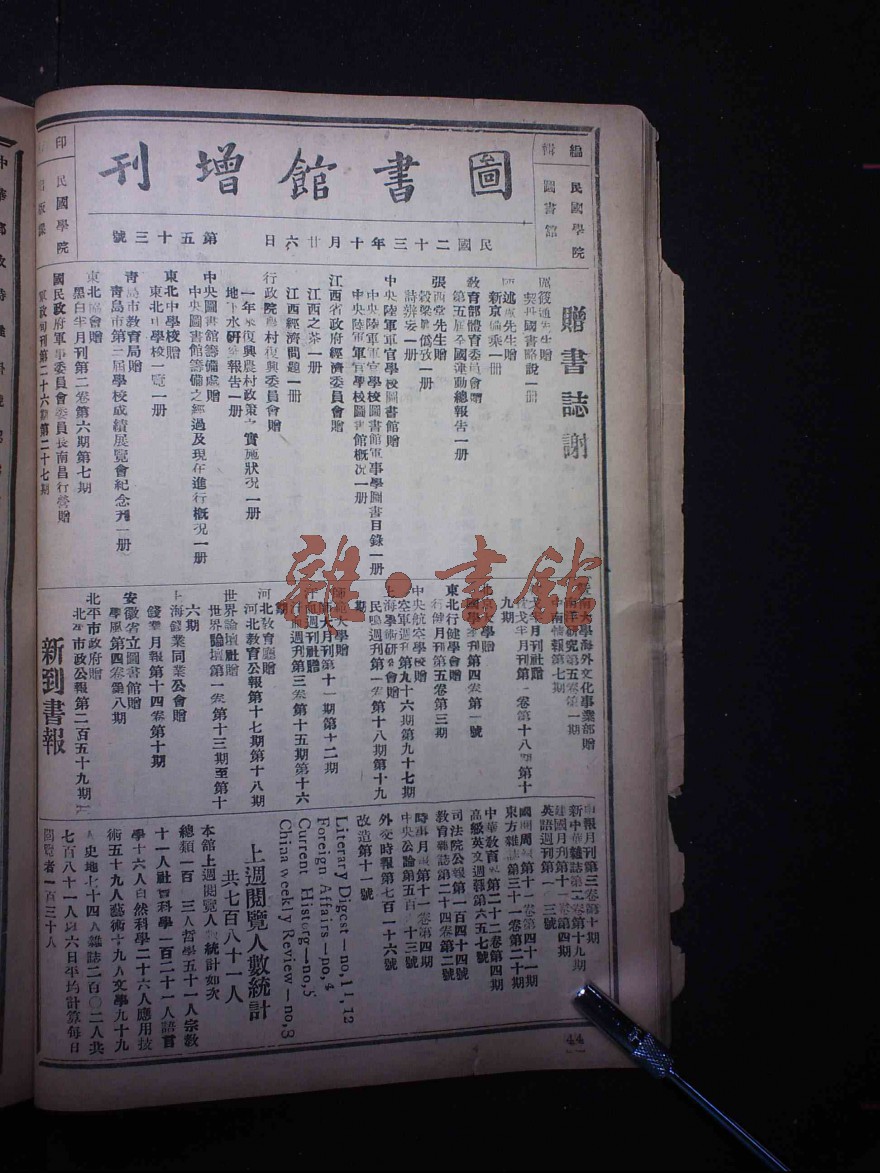 圖書館增刊
編輯 民國學院圖書館
印 民國學院出版課
民國二十三年十月廿六日
第五十三號
贈書誌謝
筱通先生贈
契丹國書略說一册
述 先生贈
新京備乘一册
教育部體育委員會贈
第五屆全國運動總報告一册
張西堂先生贈
穀梁眞僞攷一册
詩辨妄一册
中央陸軍軍官學校圖書館贈
中央陸軍軍官學校圖書館軍事學圖書目錄一册
中央陸軍軍官學校圖書館概況一册
江西省政府經濟委員會贈
江西之茶一册
江西經濟問題一册
行政院農村復興委員會贈
一年來復興農村政策之實施狀況一册
地下水研究報告一册
中央圖書館籌備處贈
中央圖書館籌備之經過及現在進行概況一册
東北中學校贈
東北中學校一覽一册
青島市教育局贈
青島市第三屆學校成績展覽會紀念刊一册
東北協會贈
黑白半月刊第二卷第六期第七期
國民政府軍事委員會委員長南昌行營贈
軍政旬刊第二十六期第二十七期
暨南大學海外文化事業部贈
南洋研究第五卷第一期
中南情報第七期
戈半月刊社贈
戈半月刊第一卷第十八期第十
九期
北京大學贈
國學季刊第四卷第一號
東北行健學會贈
行健月刊第五卷第三期
中央航空學校贈
空軍週刊第九十六期第九十七期
上海學術研究會贈
民鳴週刊第一卷第十八期第十九
期
師範大學贈
師大月刊第十一期第十二期
汗血週刊社贈
汗血週刊第三卷第十五期第十六
期
河北教育廳贈
河北教育公報第十七期第十八期
世界論壇社贈
世界論壇第一卷第十三期至第十
六期
上海錢業同業公會贈
錢業月報第十四卷第十期
安徽省立圖書館贈
學風第四卷第八期
北平市政府贈
北平市政公報第二百五十九期
新到書報
申報月刊第三卷第十期
新中華雜誌第二卷第十九期
建國月刊第十一卷第四期
英語週刊第一 三號
國聞周報第十一卷第四十一期
東方雜誌第三十一卷第二十期
中華教育界第二十二卷第四期
高級英文週報第六五七號
司法院公報第一百四十四號
教育雜誌第二十四卷第二號
時事月報第十一卷第四期
中央公論第五百 十三號
外交時報第七百一十六號
改造第十一號
Literary Digest—no, 11, 12
Foreign Affairs—no, 4
Current Historg—no, 5
China weekly Review—no, 3
上週閱覽人數統計
共七百八十一人
本館上週閱覽人數統計如次
總類一百 三人哲學五十一人宗敎
十一人社會科學一百二十一人語言
學十六人自然科學二十六人應用技
術五十九人藝術十九人文學九十九
人史地七十四人雜誌二百〇二人共
七百八十一人以六日平均計算每日
閱覽者一百三十人
44
中華郵政特
雜·書館